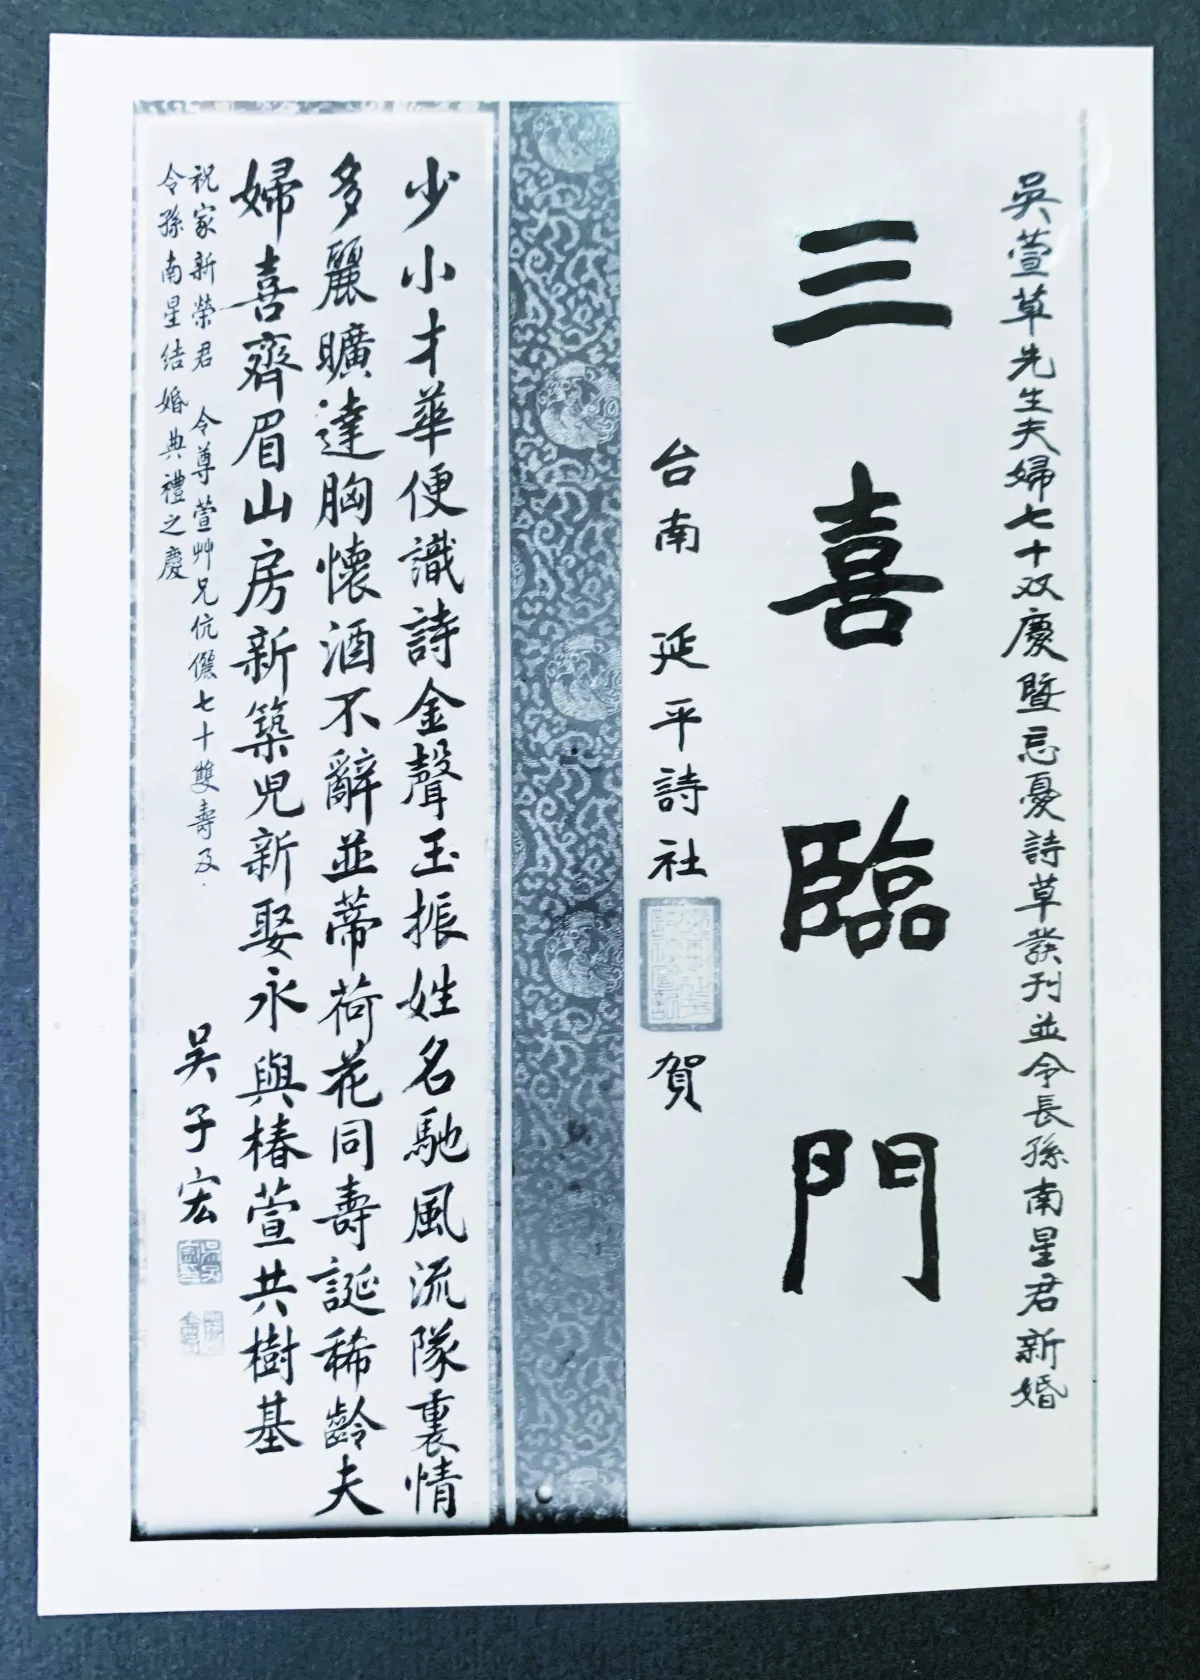 吳萱草先生夫婦七十双慶暨忘憂詩草發刊並令長孫南星君新婚
三喜臨門
台南 延平詩社 賀
少小才華便識詩金聲玉振姓名馳風流隊裏情
多麗曠達胸懷酒不辭並蒂荷花同壽誕稀齡夫
婦喜齊眉山房新築兒新娶永與椿萱共樹基
祝家新榮君 令尊萱艸兄伉儷七十雙壽及
令孫南星結婚典禮之慶
吳子宏